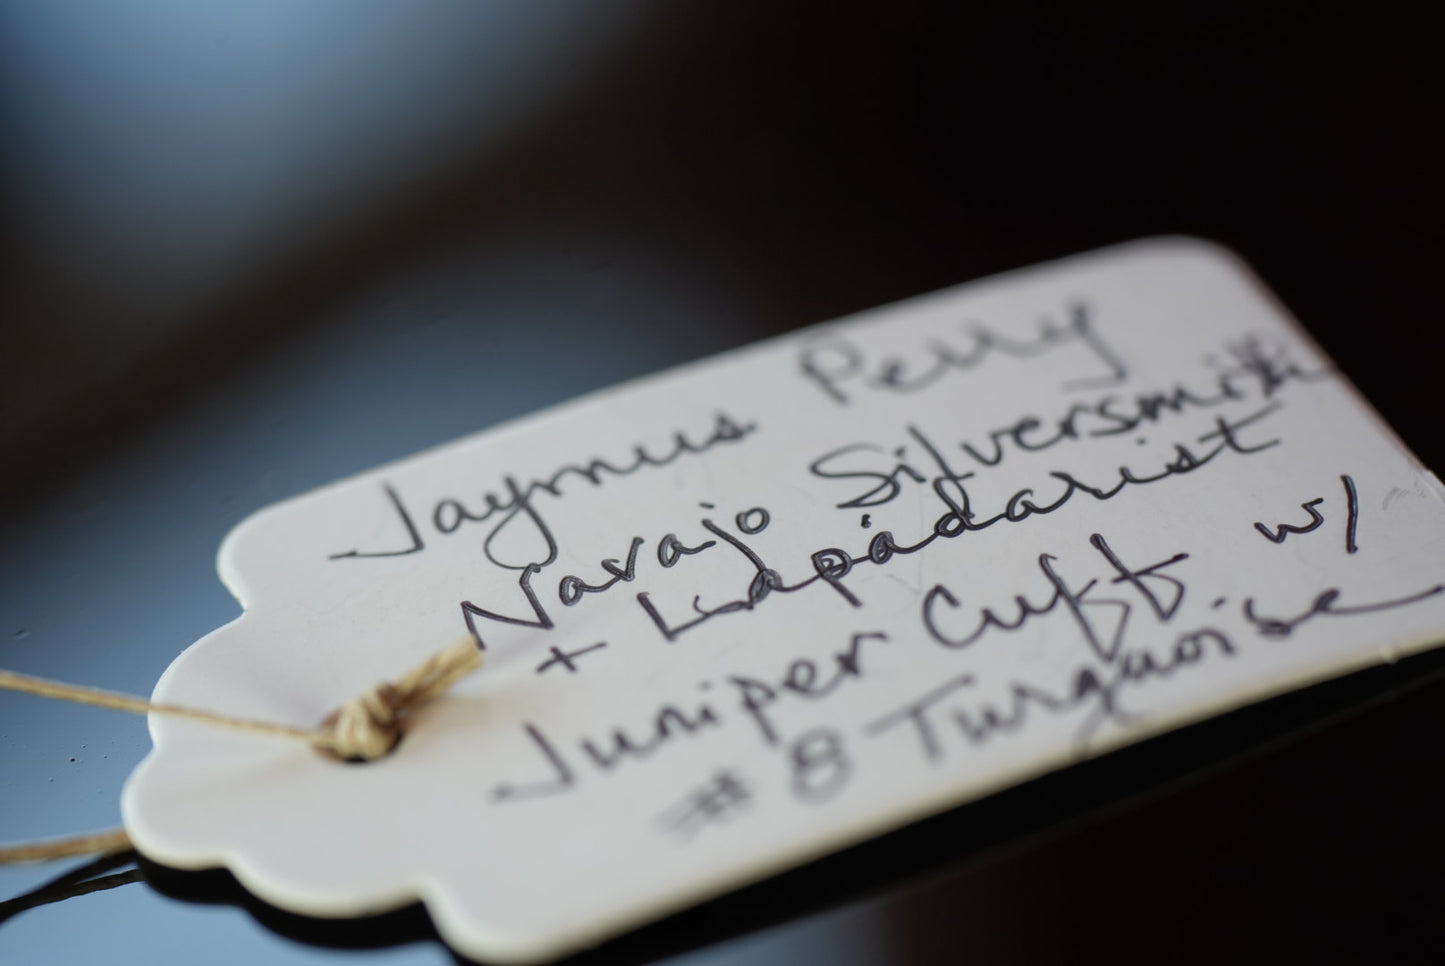 Jaymus Perry
Navajo Silversmith
+ Lapadarist
Juniper Cuff w/
# 8 Turquoise